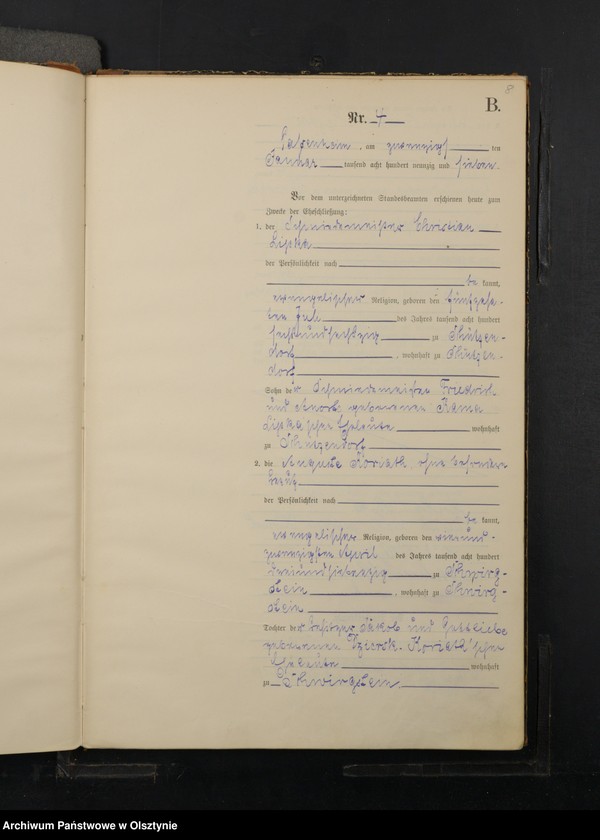 8
B.
Nr. 4
am zwanzigsten
Januar tausend acht hundert neunzig und sieben
Vor dem unterzeichneten Standesbeamten erschienen heute zum
Zwecke der Eheschließung:
1. der Schmiedemeister Christian
Lipka
der Persönlichkeit nach
be kannt,
evangelischer Religion, geboren den fünfzehn-
ten Juli des Jahres tausend acht hundert
sechsundsechszig zu Schützen-
dorf, wohnhaft zu Schützen-
dorf
Sohn der Schmiedemeister Friedrich
und geborenen
Lipka'schen Eheleute wohnhaft
zu Schützendorf
2. die Auguste Koriath, ohne besondern
der Persönlichkeit nach
be kannt,
evangelischer Religion, geboren den vierund-
zwanzigsten April des Jahres tausend acht hundert
zweiundsiebenzig zu Schwirg-
stein, wohnhaft zu Schwirg-
stein
Tochter der Besitzer Jakob und Gottliebe
geborenen Koriath'schen
Eheleute wohnhaft
zu Schwirgstein
Archiwum Państwowe w Olsztynie